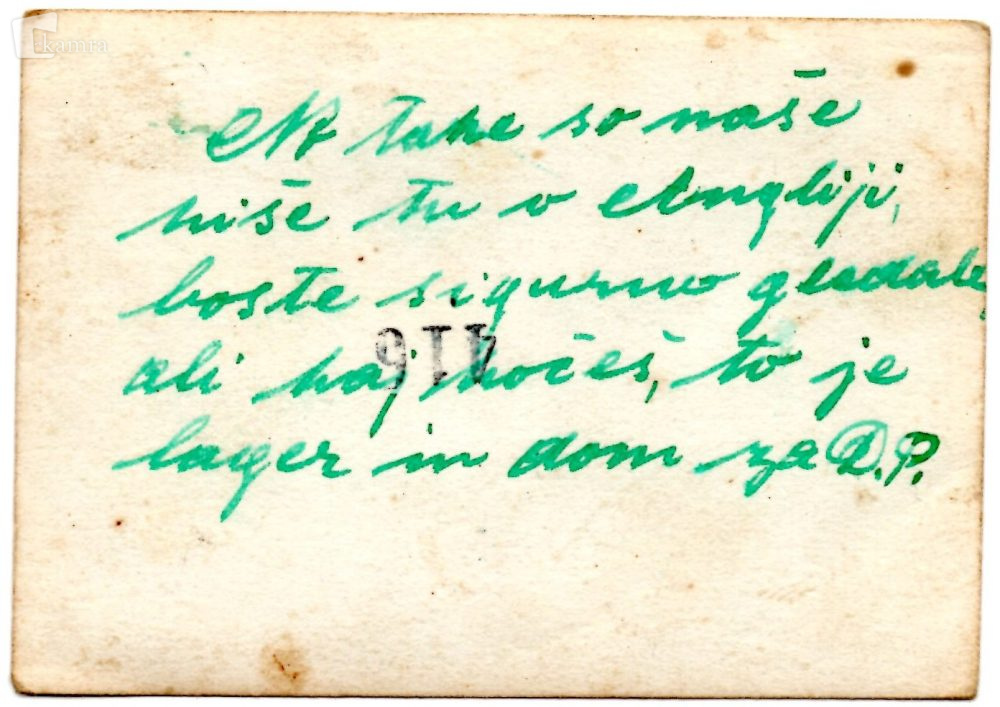 kamra
take so naše
hiše tu v Angliji,
boste sigurno gledale,
ali kaj hočeš, to je
lager in dom za D.P.
116